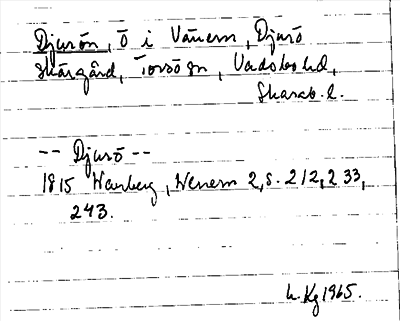 Djurön, ö i Vänern, Djurö
skärgård, Torsö sn, Vadsbo hd,
Skarab. l.
-- Djurö --
1815 Warberg, Wenern 2, s. 212, 233,
243.
L. Kg 1965.